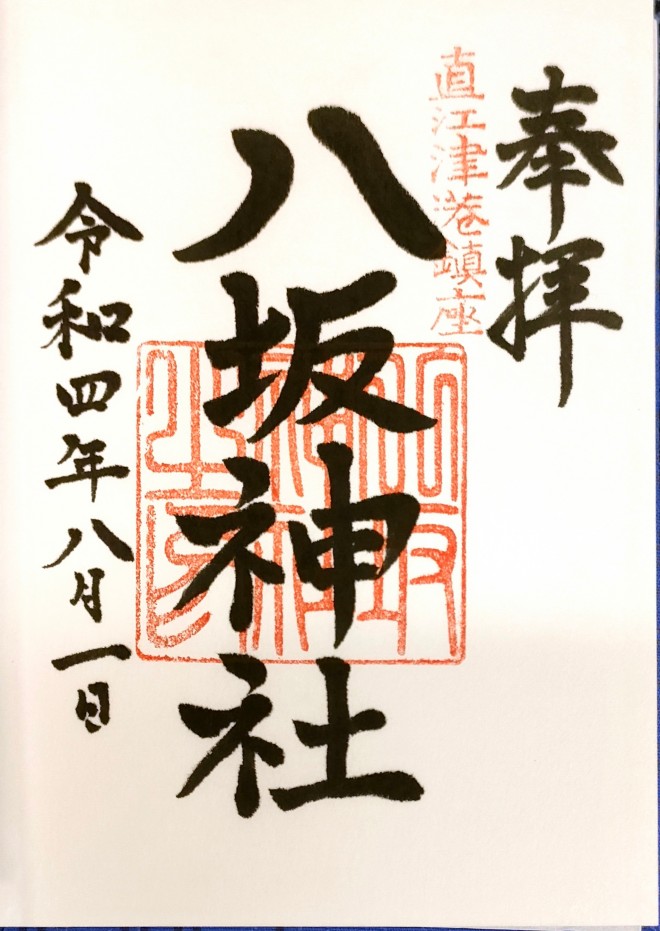 奉拝
直江津港鎮座
八坂神社
令和四年八月一日